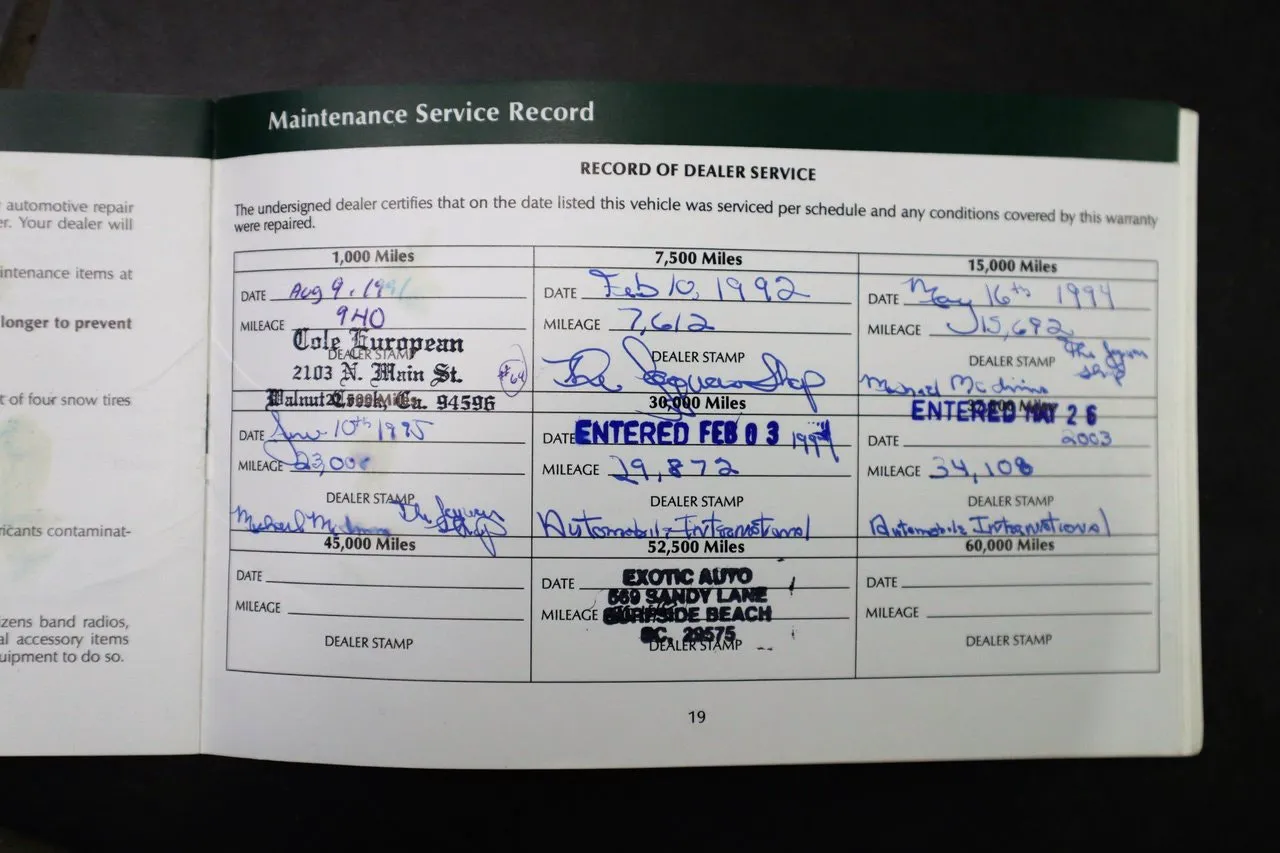 Maintenance Service Record
RECORD OF DEALER SERVICE
The undersigned dealer certifies that on the date listed this vehicle was serviced per schedule and any conditions covered by this warranty
were repaired.
automotive repair
er. Your dealer will
intenance items at
longer to prevent
t of four snow tires
ricants contaminat-
izens band radios,
al accessory items
uipment to do so.
1,000 Miles
DATE Aug 9, 1991
MILEAGE 940
DEALER STAMP
Cole European
2103 N. Main St.
Walnut Creek, Ca. 94596
#64
7,500 Miles
DATE Feb 10, 1992
MILEAGE 7,612
DEALER STAMP
The Jaguar Shop
15,000 Miles
DATE May 16th 1994
MILEAGE 15,692
DEALER STAMP
The Jaguar
Shop
Michael
22,500 Miles
DATE 10th 1995
MILEAGE 23,008
DEALER STAMP
Michael
The Jaguar
Shop
30,000 Miles
DATE ENTERED FEB 03
MILEAGE 29,872
DEALER STAMP
Automobile International
37,500 Miles
ENTERED MAY 26
DATE 2003
MILEAGE 34,108
DEALER STAMP
Automobile International
45,000 Miles
DATE
MILEAGE
DEALER STAMP
52,500 Miles
DATE
MILEAGE
DEALER STAMP
EXOTIC AUTO
669 SANDY LANE
SURFSIDE BEACH
SC. 29575
60,000 Miles
DATE
MILEAGE
DEALER STAMP
19